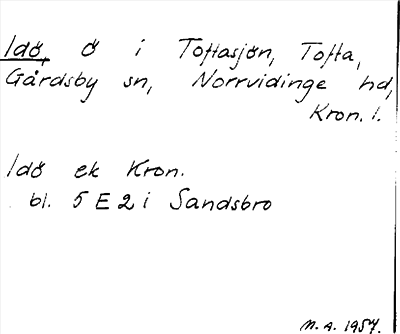 Idö, ö i Toftasjön, Tofta,
Gårdsby sn, Norrvidinge hd,
Kron. l.
Idö ek Kron.
bl. 5 E 2 i Sandsbro
M. A. 1957.